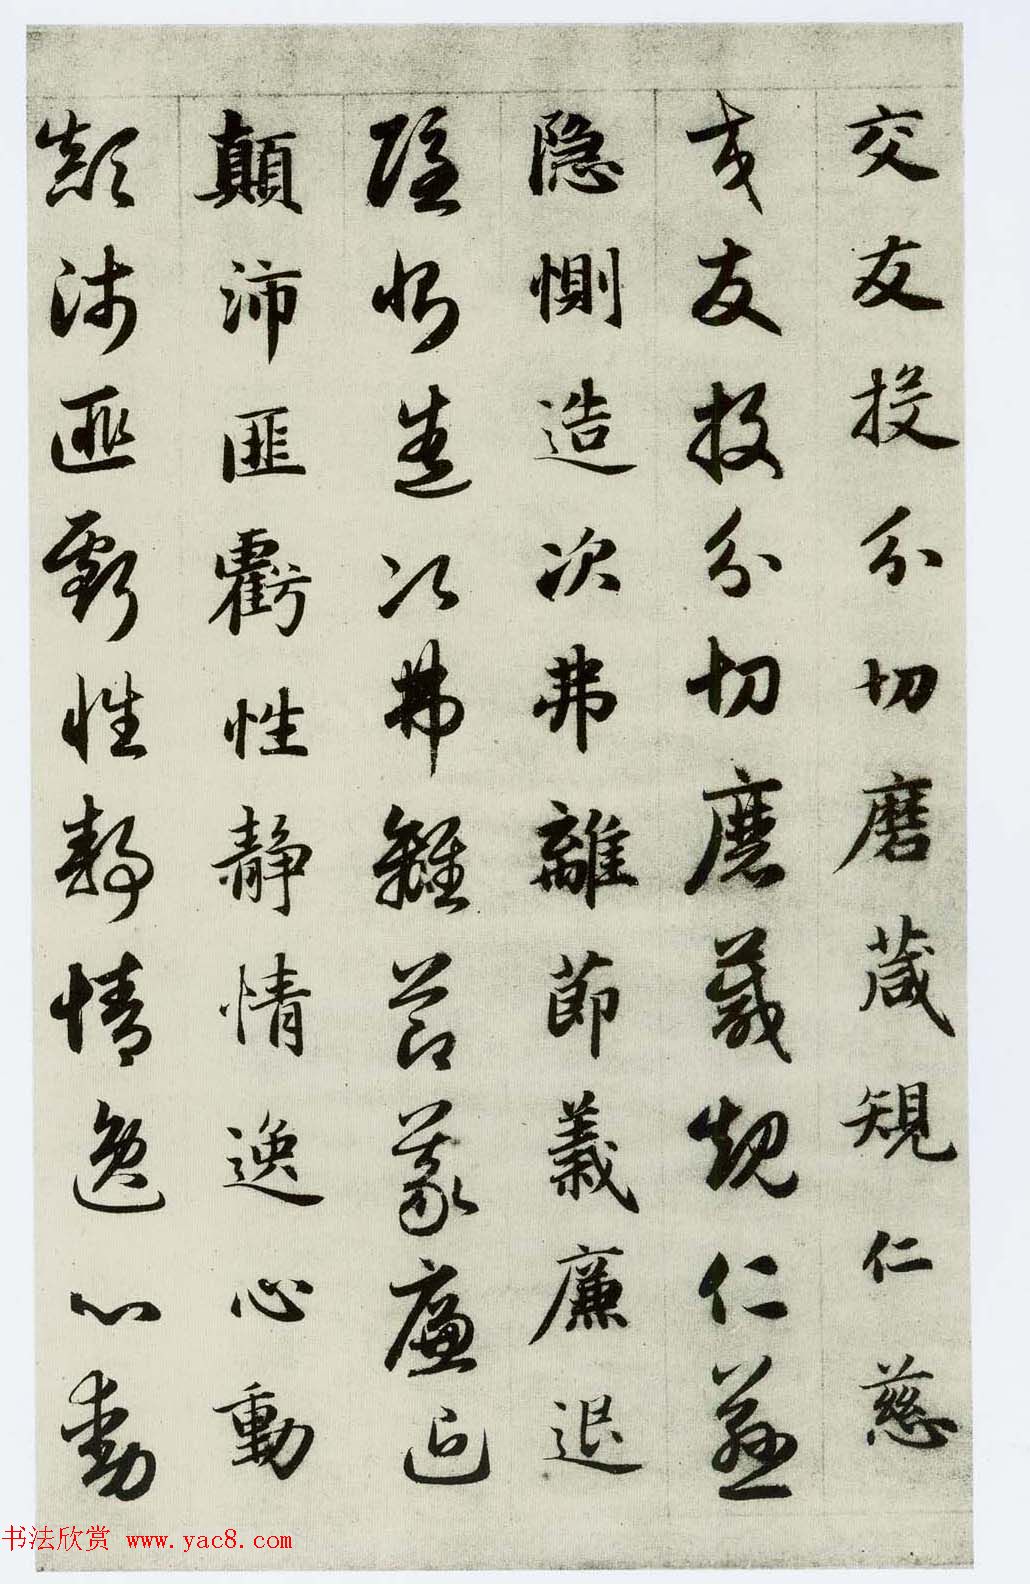 交友投分切磨葴規仁慈
交友投分切磨葴規仁慈
隐惻造次弗離節義廉退
隐惻造次弗離節義廉退
顛沛匪虧性静情逸心動
顛沛匪虧性静情逸心動
书法欣赏 www.yac8.com